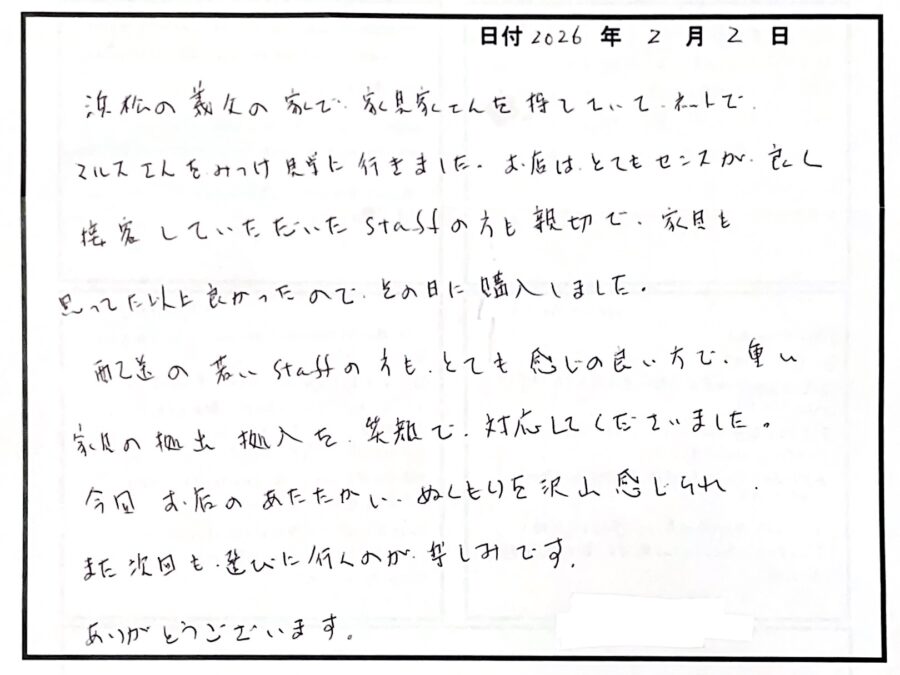 日付 2026 年 2 月 2 日
浜松の義父の家で、家具家さんを探していて、ネットで、
マルスさんをみつけ見学に行きました。お店は、とてもセンスが、良く
接客していただいたstaffの方も親切で、家具も
思ってた以上に良かったので、その日に購入しました。
配送の若いstaffの方も、とても感じの良い方で、重い
家具の搬出搬入を、笑顔で、対応してくださいました。
今回お店のあたたかい、ぬくもりを沢山感じられ、
また次回も、選びに行くのが、楽しみです。
ありがとうございます。